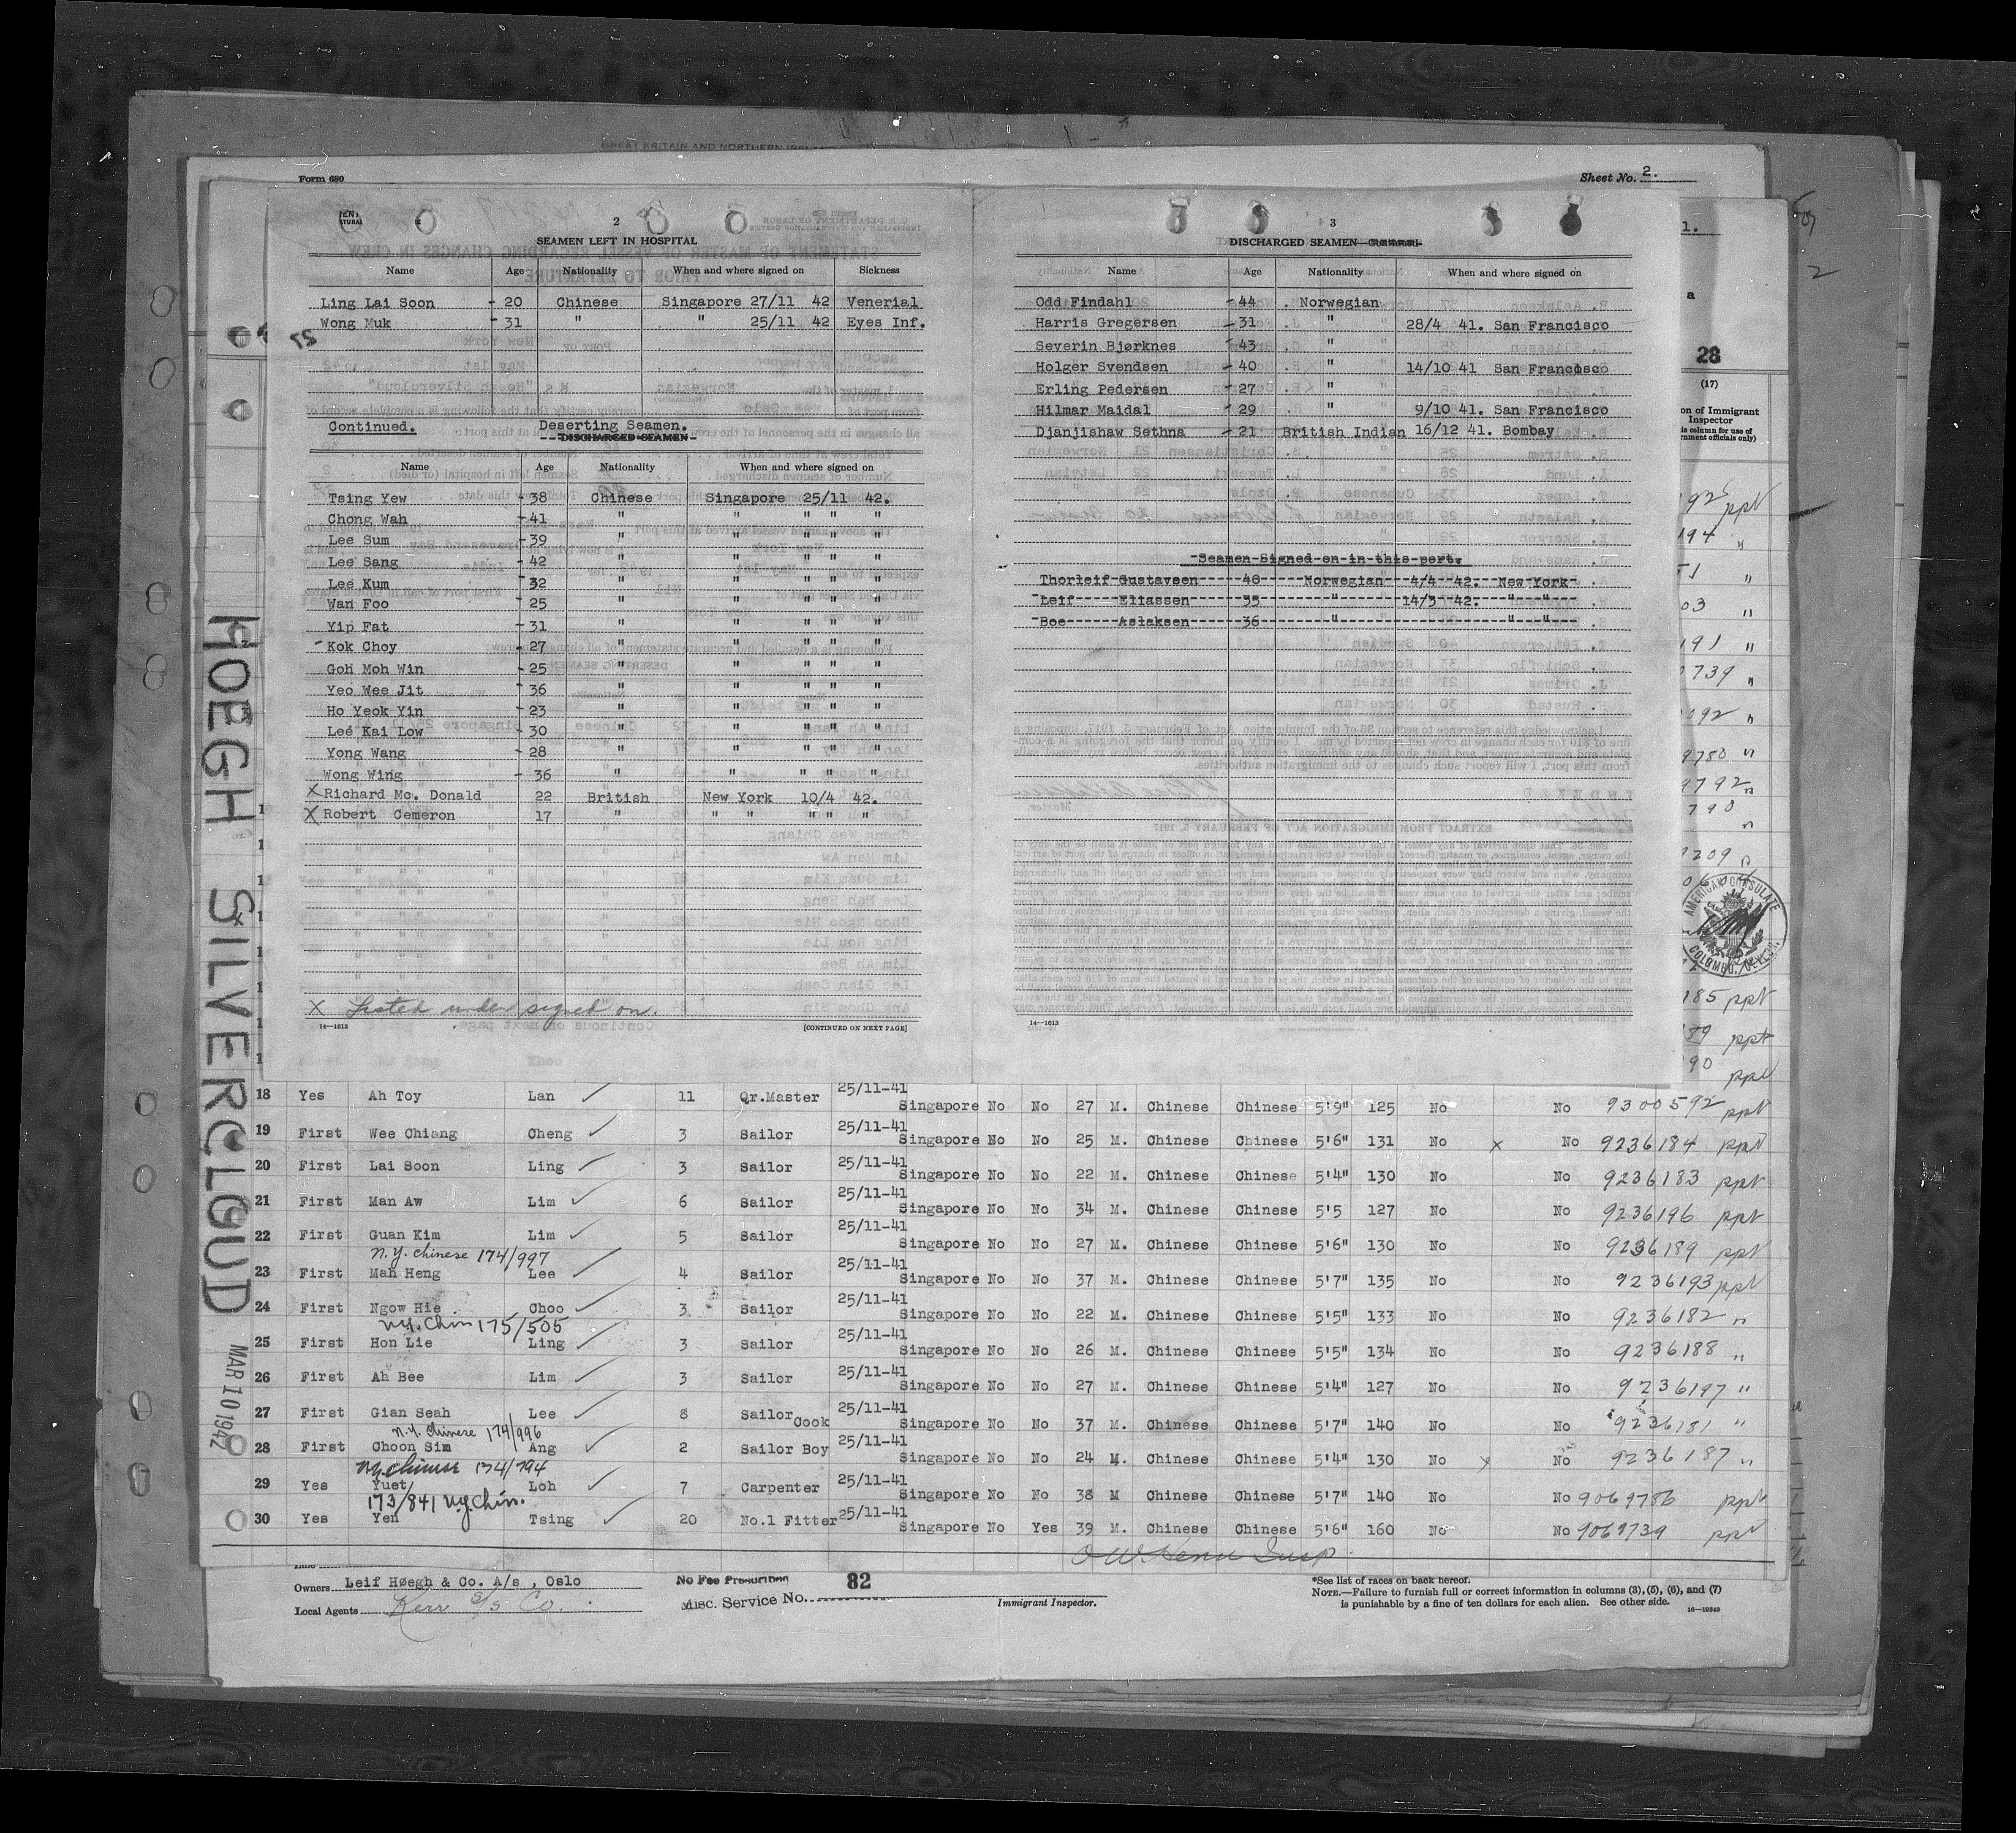 Form 680
Sheet No. 2.
2
SEAMEN LEFT IN HOSPITAL
Name Age Nationality When and where signed on Sickness
Ling Lai Soon - 20 Chinese Singapore 27/11 42 Venerial
Wong Muk - 31 " " 25/11 42 Eyes Inf.
Continued. Deserting Seamen.
DISCHARGED SEAMEN
Name Age Nationality When and where signed on
Tsing Yew - 38 Chinese Singapore 25/11 42.
Chong Wah - 41 " " " " "
Lee Sum - 39 " " " " "
Lee Sang - 42 " " " " "
Lee Kum - 32 " " " " "
Wan Foo - 25 " " " " "
Yip Fat - 31 " " " " "
- Kok Choy - 27 " " " " "
Goh Moh Win - 25 " " " " "
Yeo Wee Jit - 36 " " " " "
Ho Yeok Yin - 23 " " " " "
Lee Kai Low - 30 " " " " "
Yong Wang - 28 " " " " "
Wong Wing - 36 " " " " "
X Richard Mc. Donald 22 British New York 10/4 42.
X Robert Cemeron 17 " " " " " "
X Listed under signed on.
14—1613 [CONTINUED ON NEXT PAGE]
3
DISCHARGED SEAMEN
Name Age Nationality When and where signed on
Odd Findahl - 44 . Norwegian
Harris Gregersen - 31 " 28/4 41. San Francisco
Severin Bjørknes - 43 "
Holger Svendsen - 40 " 14/10 41 San Francosco
Erling Pedersen - 27 "
Hilmar Maidal - 29 " 9/10 41. San Francisco
Djanjishaw Sethna - 21 British Indian 16/12 41. Bombay
Seamen Signed on in this port.
Thorleif Gustavsen 40 Norwegian 4/4 42. New York
Leif Eliassen 35 " 14/3 42. " "
Boe Aslaksen 36 " " "
14—1613
1.
a
28
(17)
on of Immigrant
Inspector
is column for use of
rnment officials only)
AMERICAN CONSULATE
COLOMBO, CEYLON.
HOEGH SILVERCLOUD
MAR 10 1942
18 Yes Ah Toy Lan ✓ 11 Qr.Master 25/11-41 Singapore No No 27 M. Chinese Chinese 5'9" 125 No No 9300592 ppt
19 First Wee Chiang Cheng ✓ 3 Sailor 25/11-41 Singapore No No 25 M. Chinese Chinese 5'6" 131 No x No 9236184 ppt
20 First Lai Soon Ling ✓ 3 Sailor 25/11-41 Singapore No No 22 M. Chinese Chinese 5'4" 130 No No 9236183 ppt
21 First Man Aw Lim ✓ 6 Sailor 25/11-41 Singapore No No 34 M. Chinese Chinese 5'5 127 No No 9236196 ppt
22 First Guan Kim Lim ✓ 5 Sailor 25/11-41 Singapore No No 27 M. Chinese Chinese 5'6" 130 No No 9236189 ppt
N.Y. Chinese 174/997
23 First Mah Heng Lee ✓ 4 Sailor 25/11-41 Singapore No No 37 M. Chinese Chinese 5'7" 135 No No 9236193 ppt
24 First Ngow Hie Choo ✓ 3 Sailor 25/11-41 Singapore No No 22 M. Chinese Chinese 5'5" 133 No No 9236182 "
N.Y. Chin 175/505
25 First Hon Lie Ling ✓ 3 Sailor 25/11-41 Singapore No No 26 M. Chinese Chinese 5'5" 134 No No 9236188 "
26 First Ah Bee Lim ✓ 3 Sailor 25/11-41 Singapore No No 27 M. Chinese Chinese 5'4" 127 No No 9236197 "
27 First Gian Seah Lee ✓ 8 Sailor Cook 25/11-41 Singapore No No 37 M. Chinese Chinese 5'7" 140 No No 9236181 "
N.Y. Chinese 174/996
28 First Choon Sim Ang ✓ 2 Sailor Boy 25/11-41 Singapore No No 24 M. Chinese Chinese 5'4" 130 No x No 9236187 "
N.Y. Chinese 174/794
29 Yes Yuet Loh ✓ 7 Carpenter 25/11-41 Singapore No No 38 M Chinese Chinese 5'7" 140 No No 9069786 ppt
173/841 N.Y. Chin.
30 Yes Yen Tsing ✓ 20 No.1 Fitter 25/11-41 Singapore No Yes 39 M. Chinese Chinese 5'6" 160 No No 9069739 ppt
Owners Leif Høegh & Co. A/s , Oslo
Local Agents Kerr S/S Co.
No Fee Prescribed
Misc. Service No.
82
Immigrant Inspector.
*See list of races on back hereof.
NOTE.—Failure to furnish full or correct information in columns (3), (5), (6), and (7)
is punishable by a fine of ten dollars for each alien. See other side.
16—19349